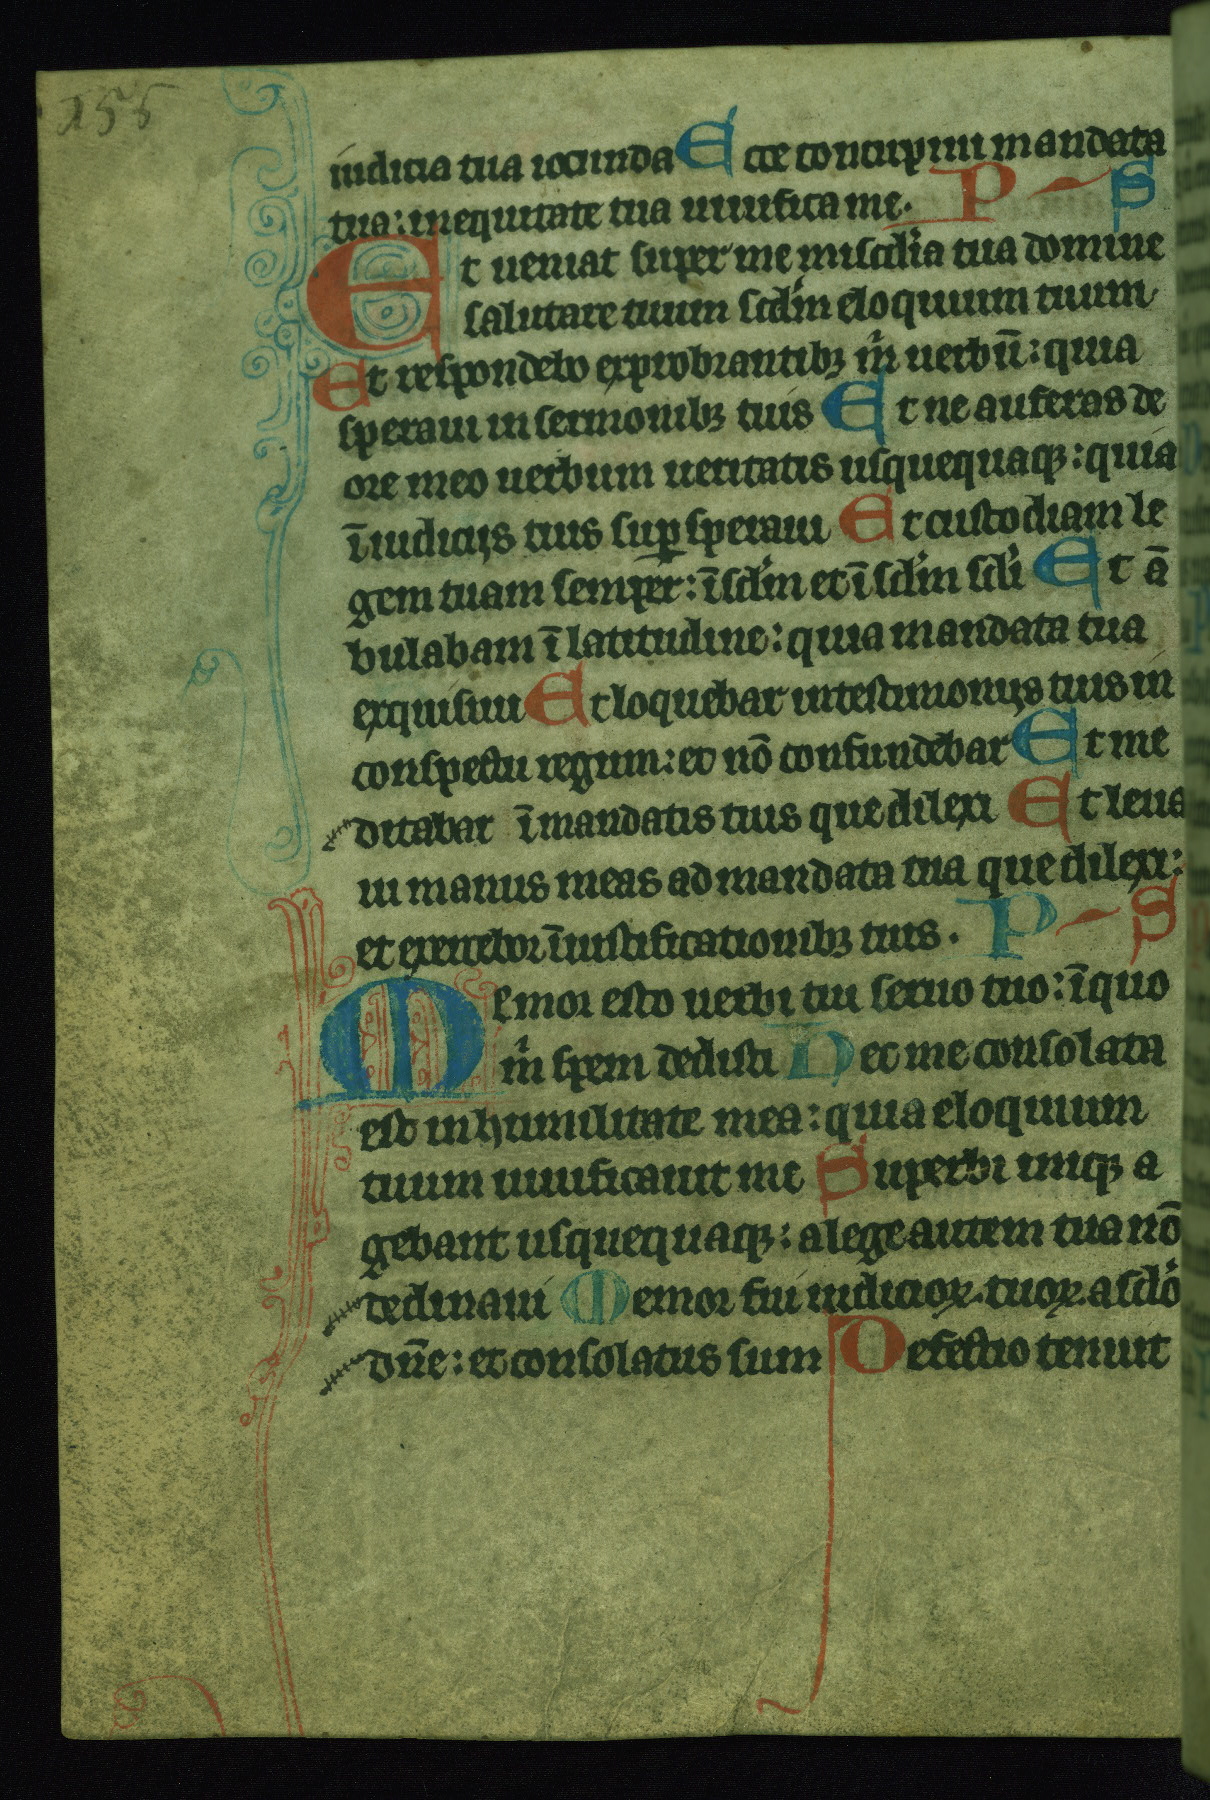 155
iudicia tua iocunda Ecce concupiui mandata
tua: in equitate tua uiuifica me. P S
Et ueniat super me miscdia tua domine
salutare tuum scdm eloquium tuum
Et respondebo exprobrantibꝫ m uerbū: quia
speraui in sermonibꝫ tuis Et ne auferas de
ore meo uerbum ueritatis usquequaqꝫ: quia
ī iudicijs tuis supsperaui Et custodiam le
gem tuam semper: ī sclm et ī sclm scli Et ā
bulabam ī latitudine: quia mandata tua
exquisiui Et loquebar in testimonijs tuis in
conspectu regum: et nō confundebar Et me
ditabar ī mandatis tuis que dilexi Et leua
ui manus meas ad mandata tua que dilexi:
et exercebor ī iustificationibꝫ tuis. P S
Memor esto uerbi tui seruo tuo: ī quo
m spem dedisti Hec me consolata
est in humilitate mea: quia eloquium
tuum uiuificauit me Superbi iniqꝫ a
gebant usquequaqꝫ: a lege autem tua nō
declinaui Memor fui iudicioꝝ tuoꝝ a sclo
dn̄e: et consolatus sum Defectio tenuit